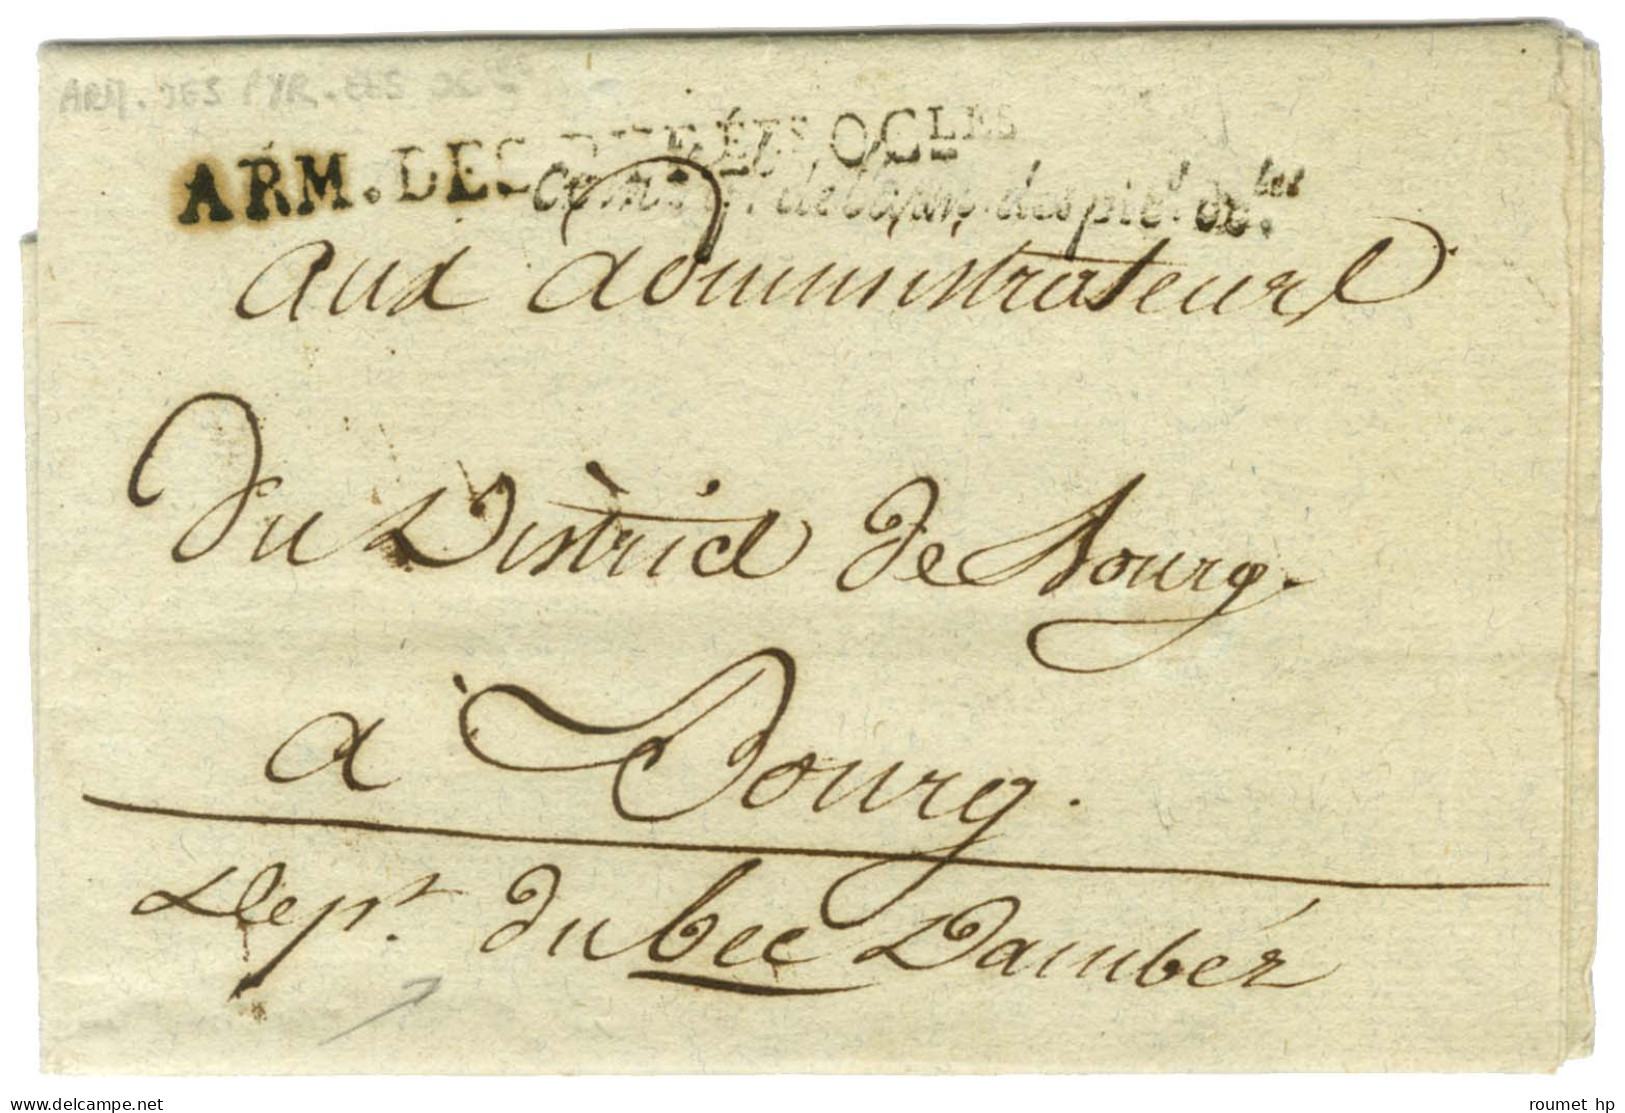 ARM. DES PYR. EES OC LES
ARM. DES PYRÉES. OCLES
de l'arm. des pir. oc.les
aux administrateurs
du District de Bourg.
a Bourg.
Dept. du bec Dambéz
www.delcampe.net
roumet hp